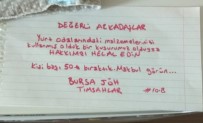 DEĞERLİ ARKADAŞLAR
Yurt odalarındaki malzemelerinizi
kullanmış olduk bir kusurumuz olduysa
HAKKINIZI HELAL EDİN
Kişi başı 50 ₺ bıraktık. Makbul görün...
BURSA JÖH
TİMSAHLAR